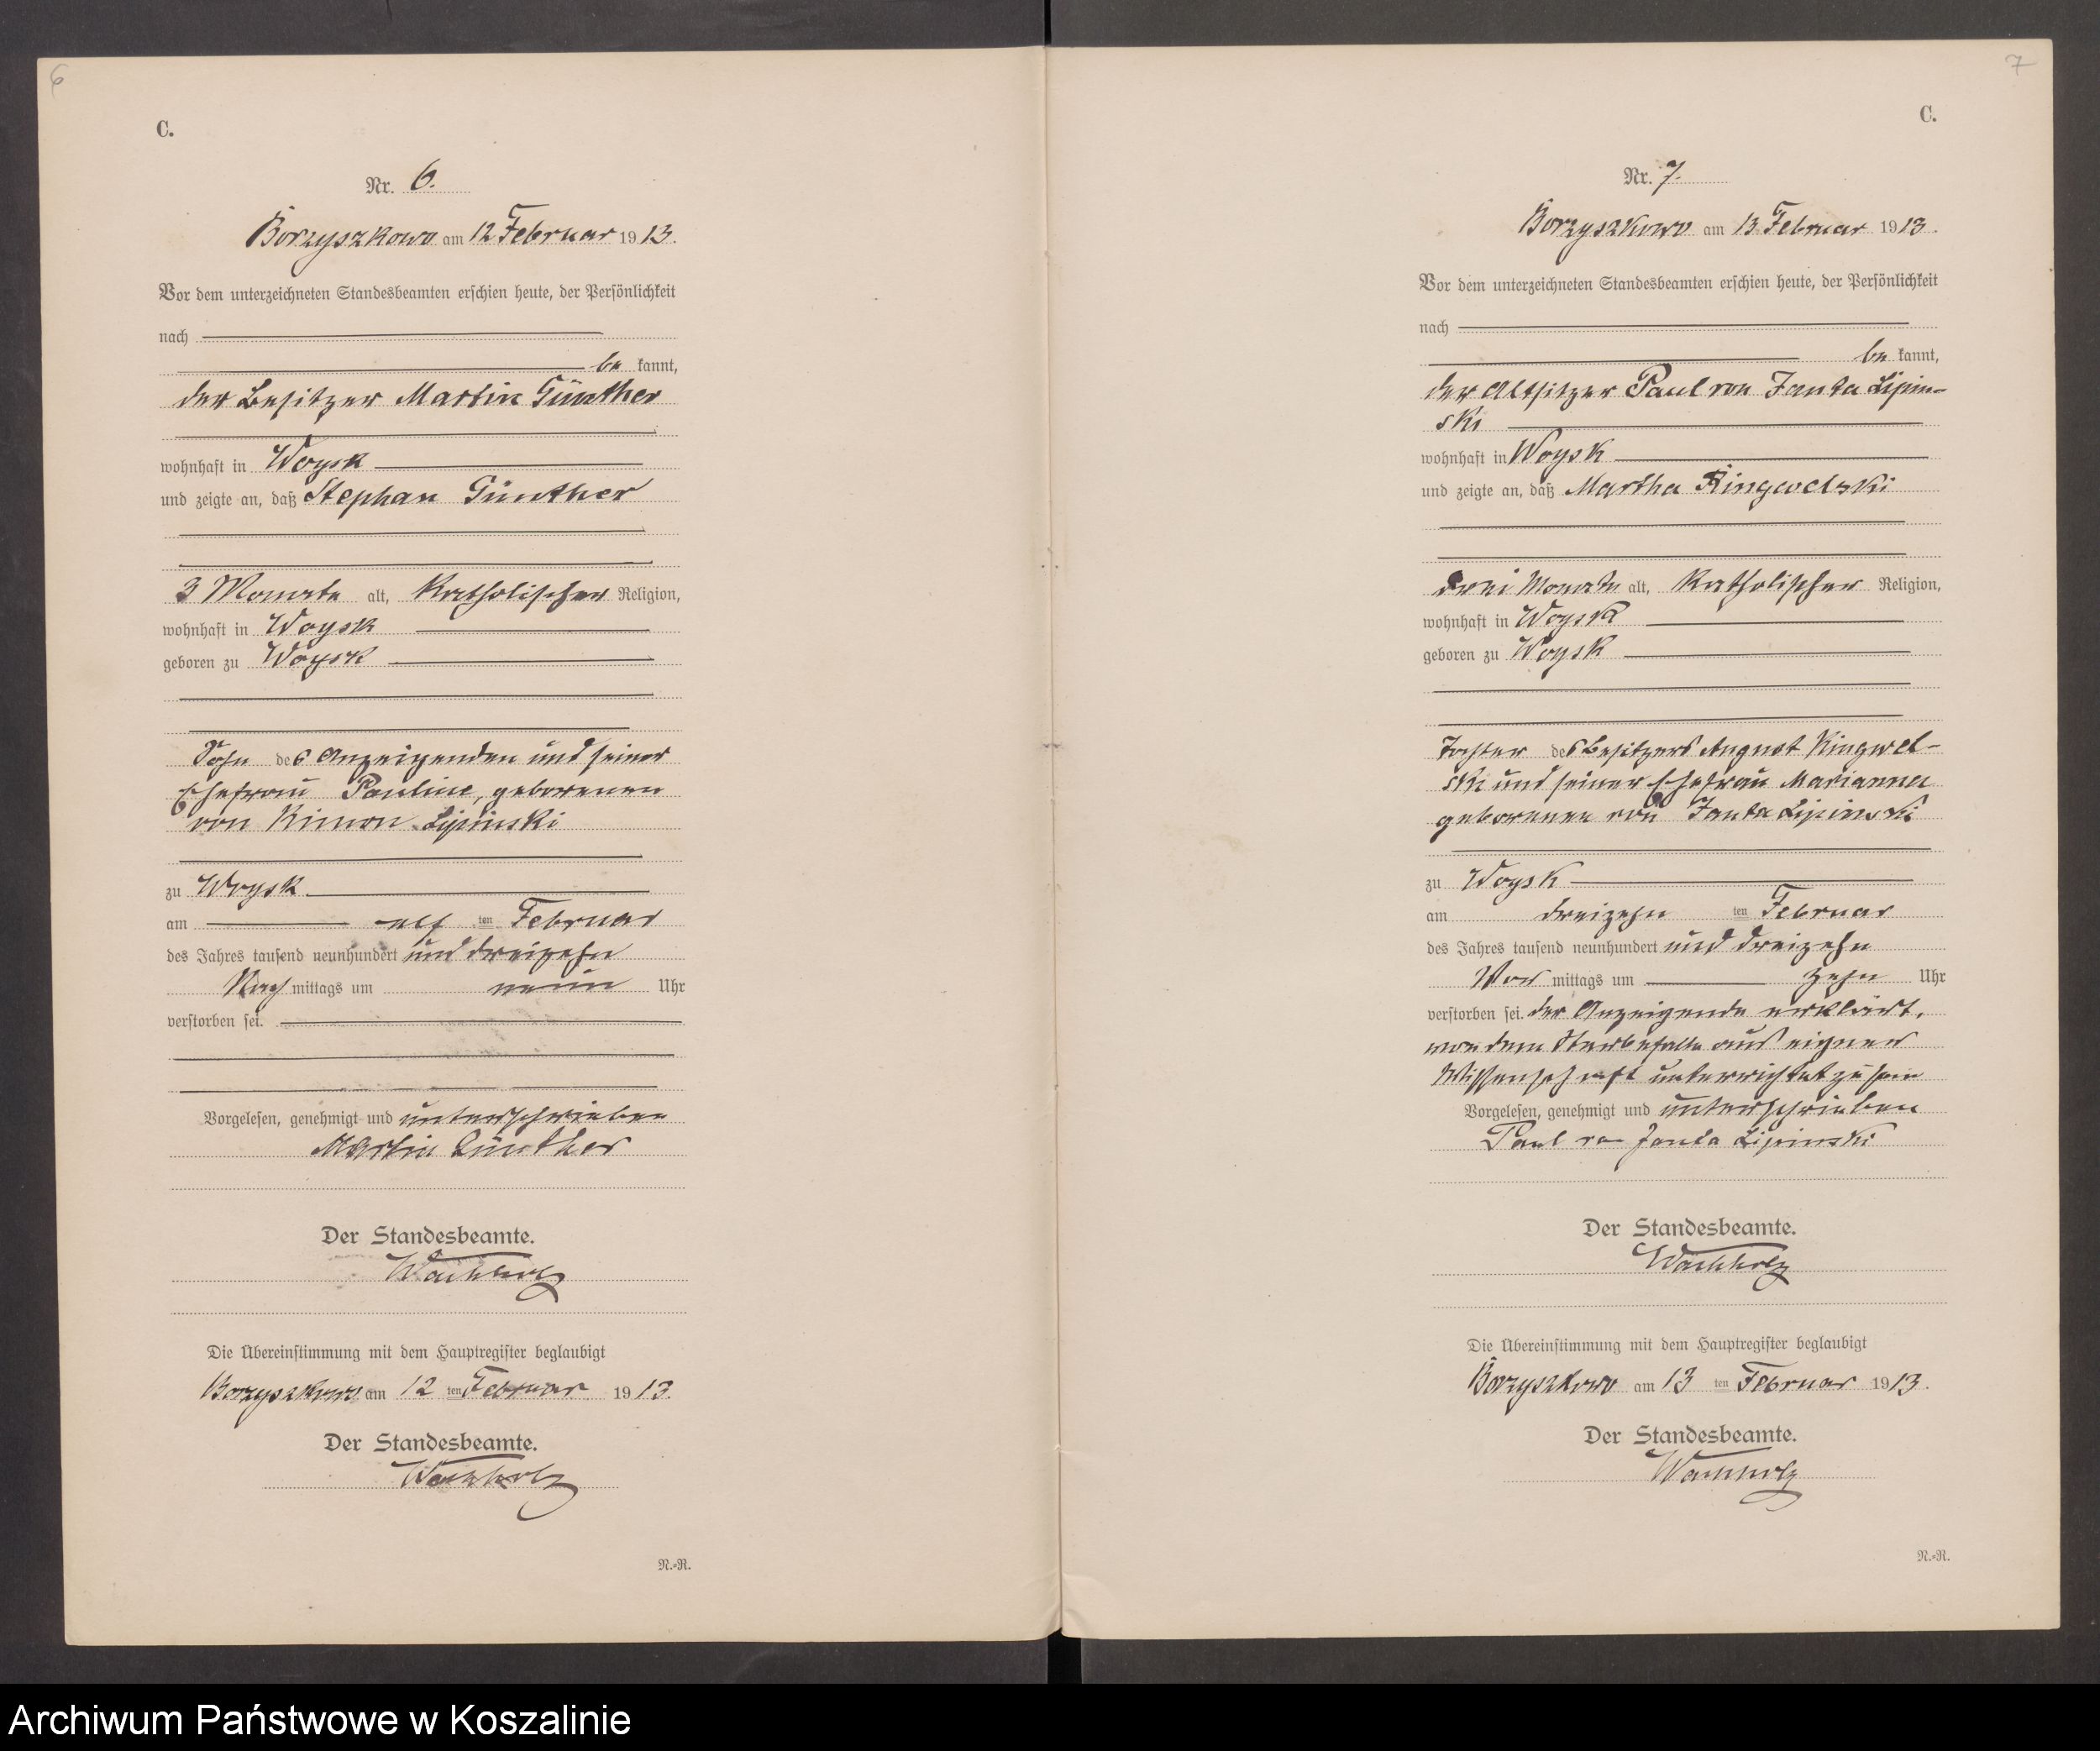 6
C.
Nr. 6.
Borzyszkowo am 12 Februar 1913.
Vor dem unterzeichneten Standesbeamten erschien heute, der Persönlichkeit
nach
be kannt,
der Besitzer Martin Günther
wohnhaft in Woysk
und zeigte an, daß Stephan Günther
3 Monate alt, katholischer Religion,
wohnhaft in Woysk
geboren zu Woysk
Sohn des Anzeigenden und seiner
Ehefrau Pauline, geborenen
von Kimon Lipinski
zu Woysk
am elf ten Februar
des Jahres tausend neunhundert und dreizehn
Nach mittags um neun Uhr
verstorben sei.
Vorgelesen, genehmigt und unterschrieben
Martin Günther
Der Standesbeamte.
Wachholz
Die Übereinstimmung mit dem Hauptregister beglaubigt
Borzyszkowo am 12 ten Februar 1913.
Der Standesbeamte.
Wachholz
N.-R.
7
C.
Nr. 7.
Borzyszkowo am 13 Februar 1913.
Vor dem unterzeichneten Standesbeamten erschien heute, der Persönlichkeit
nach
be kannt,
der Altsitzer Paul von Janta Lipin-
ski
wohnhaft in Woysk
und zeigte an, daß Martha Ringwelski
drei Monate alt, katholischer Religion,
wohnhaft in Woysk
geboren zu Woysk
Tochter des Besitzers August Ringwel-
ski und seiner Ehefrau Marianna
geborenen von Janta Lipinski
zu Woysk
am dreizehn ten Februar
des Jahres tausend neunhundert und dreizehn
Vor mittags um zehn Uhr
verstorben sei. der Anzeigende erklärt,
von dem Sterbefalle aus eigner
Wissenschaft unterrichtet zu sein
Vorgelesen, genehmigt und unterschrieben
Paul von Janta Lipinski
Der Standesbeamte.
Wachholz
Die Übereinstimmung mit dem Hauptregister beglaubigt
Borzyszkowo am 13 ten Februar 1913.
Der Standesbeamte.
Wachholz
N.-R.
Archiwum Państwowe w Koszalinie